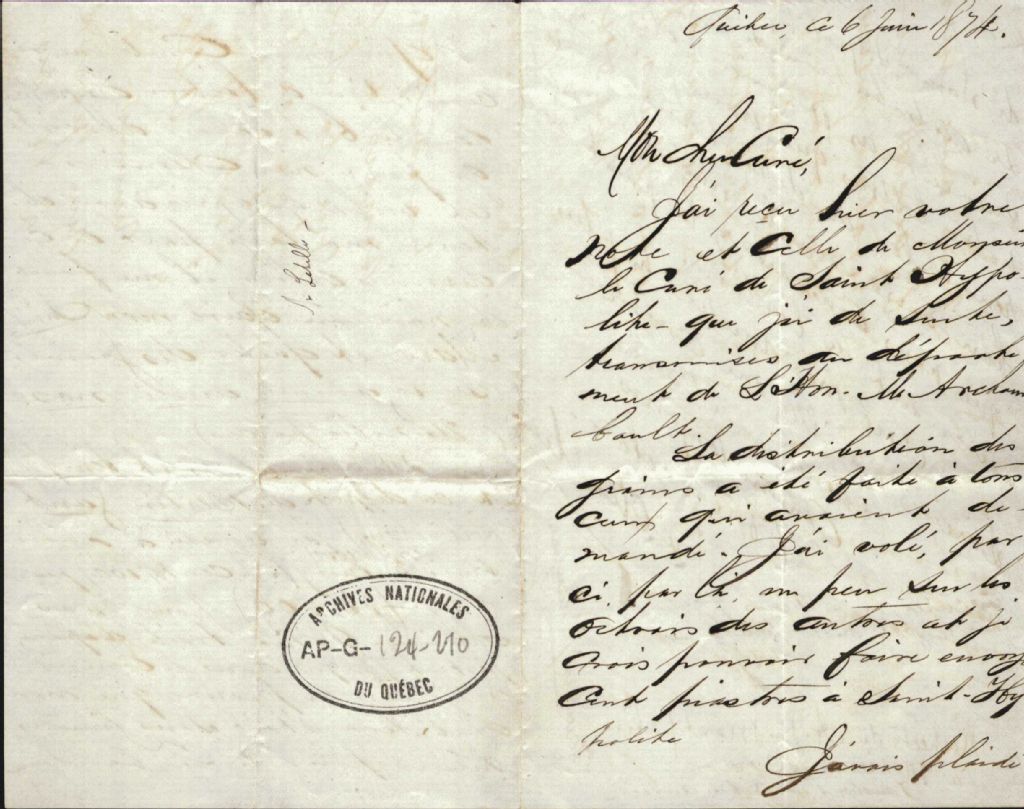 Québec, ce 6 Juin 1874.
Mon cher Curé,
J'ai reçu hier votre
note et celle de Monsieu
le Curé de Saint Hypo
lite - que j'ai de suite,
transmises au départe
ment de L'Hon. M. Archam
bault.
La distribution des
grains a été faite à tous
ceux qui avaient de-
mandé. J'ai volé, par
ci, par là, un peu sur les
octrois des autres et je
crois pouvoir faire envoy
cent piastres à Saint-Hy
polite
J'avais plaidé
ARCHIVES NATIONALES
AP-G-124-210
DU QUÉBEC